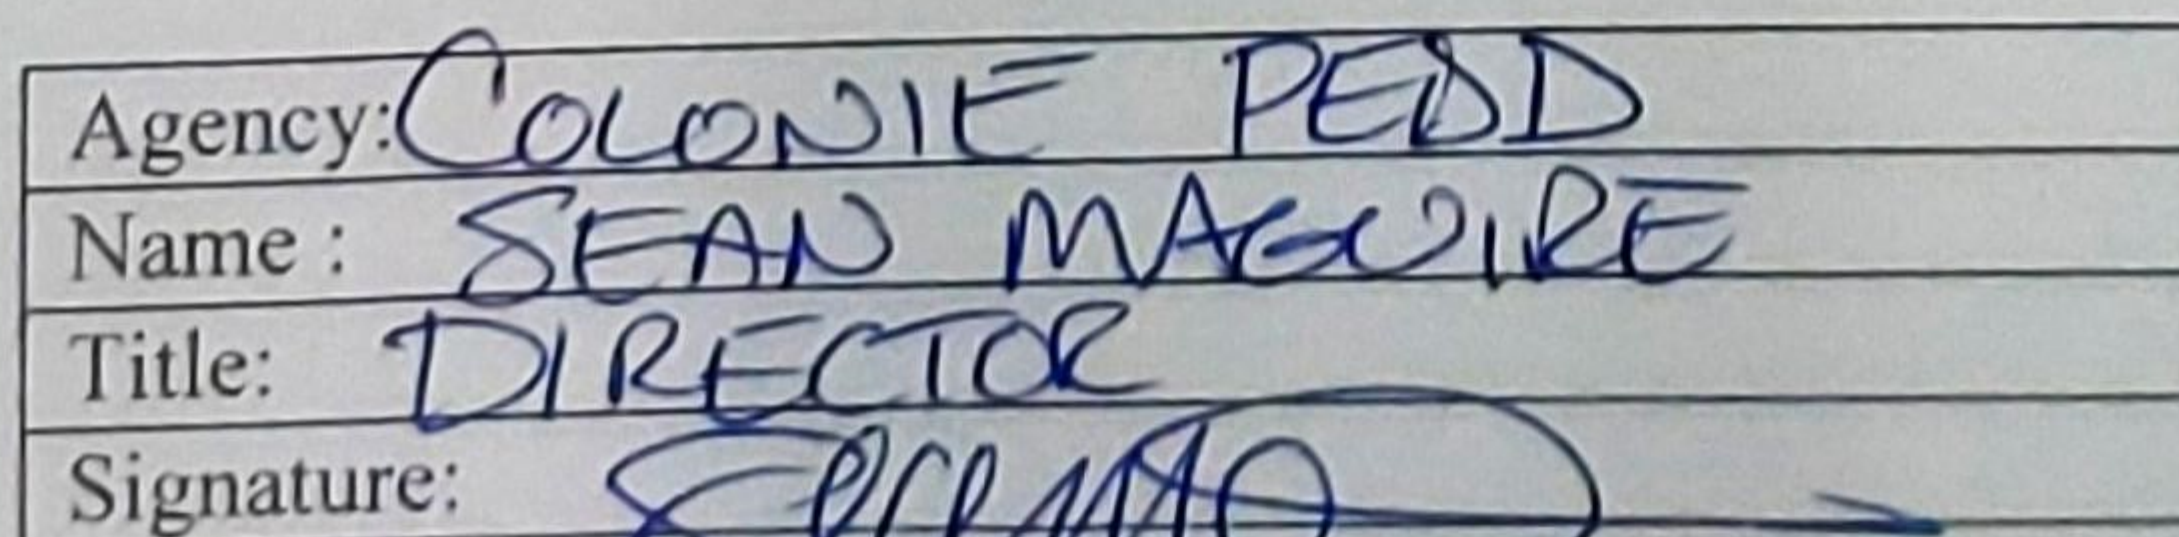 Agency: COLONIE PEDD
Name : SEAN MAGUIRE
Title: DIRECTOR
Signature: